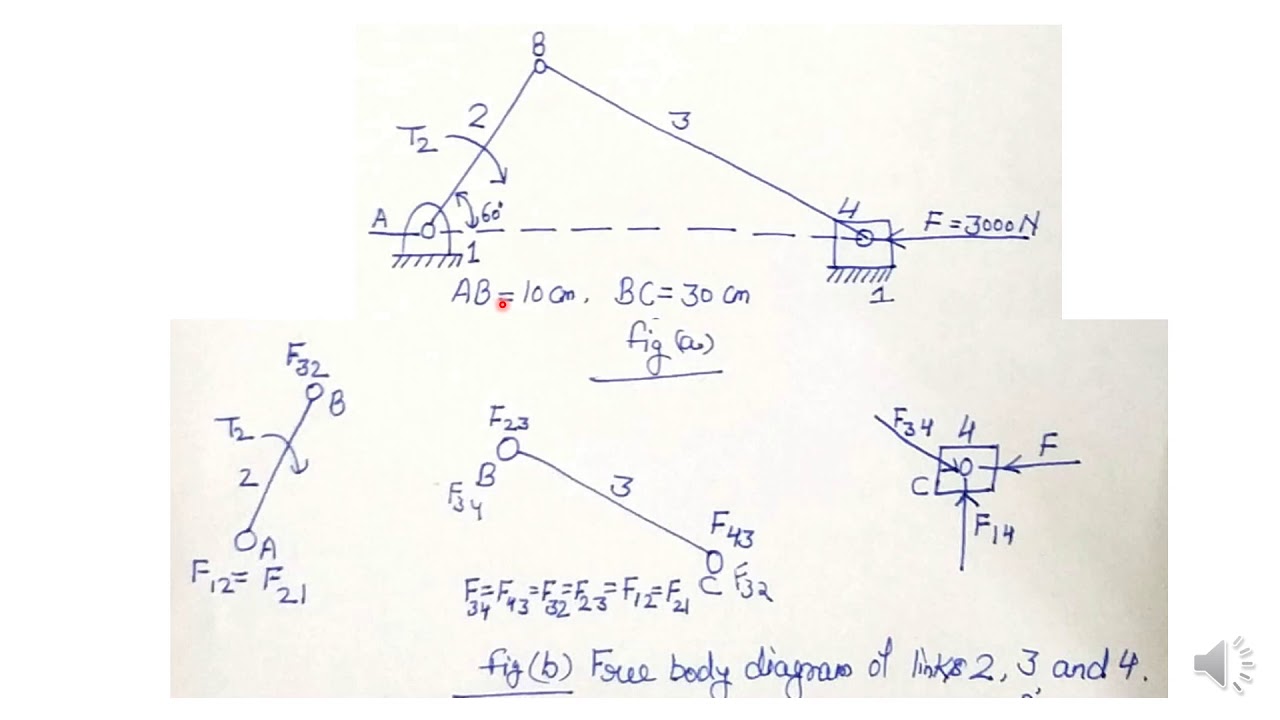 B
2
3
T2
A
60°
1
4
F = 3000N
1
AB = 10 cm, BC = 30 cm
fig(a)
F32
B
T2
2
A
F12 = F21
F23
B
F34
3
F43
C
F32
F34 = F43 = F32 = F23 = F12 = F21
F34
4
F
C
F14
fig(b) Free body diagram of links 2, 3 and 4.